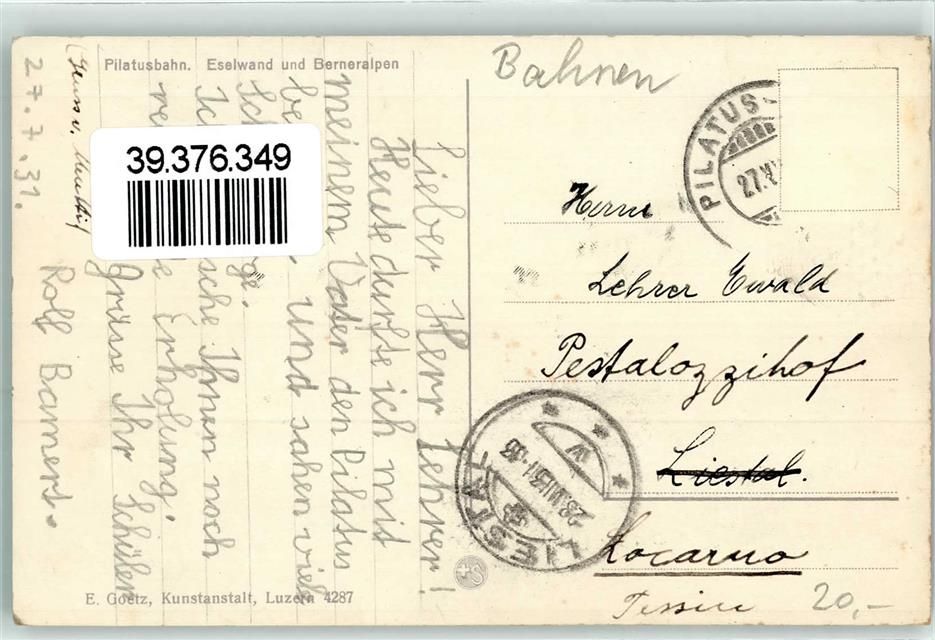 Pilatusbahn. Eselwand und Berneralpen
Bahnen
39.376.349
27. 7. 31.
Lieber Herr Lehrer!
Heute durfte ich mit
meinem Vater den Pilatus
be und sahen viel
Ihnen noch
Erholung.
Grüsse Ihr Schüler
Rolf Bamert.
PILATUS
27.
Herrn
Lehrer Ewald
Pestalozzihof
Liestal.
Locarno
Tessin
20,-
LIESTAL
28.VII.31
E. Goetz, Kunstanstalt, Luzern 4287